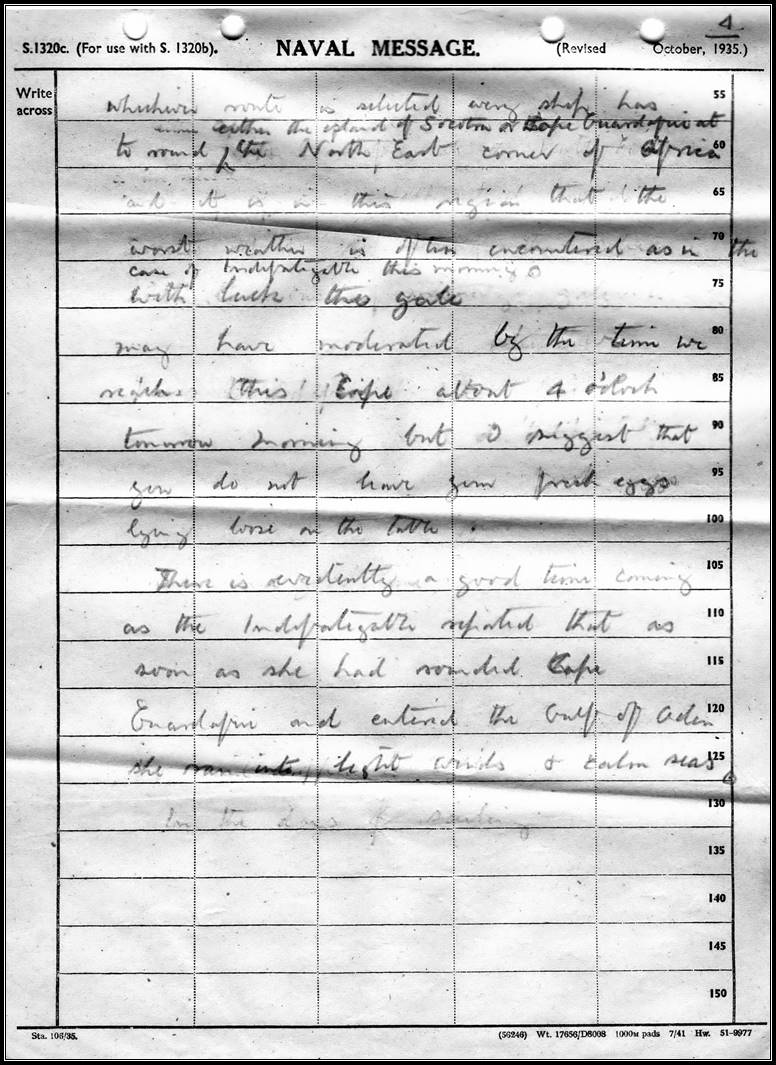 4
S.1320c. (For use with S. 1320b).
NAVAL MESSAGE.
(Revised October, 1935.)
Write across
whichever route is selected every ship has 55
either the island of Socotra or Cape Guardafui at
to round the North East corner of Africa 60
and it is in this region that the 65
worst weather is often encountered as in the 70
case of Indefatigable this morning.
With luck this gale 75
may have moderated by the time we 80
reach this Cape about 4 o'clock 85
tomorrow morning but I suggest that 90
you do not leave your fresh eggs 95
lying loose on the table. 100
There is evidently a good time coming 105
as the Indefatigable reported that as 110
soon as she had rounded Cape 115
Guardafui and entered the Gulf of Aden 120
she ran into light winds & calm seas. 125
In the days of sailing 130
135
140
145
150
Sta. 106/35.
(56246) Wt. 17656/D8008 1000M pads 7/41 Hw. 51-9977